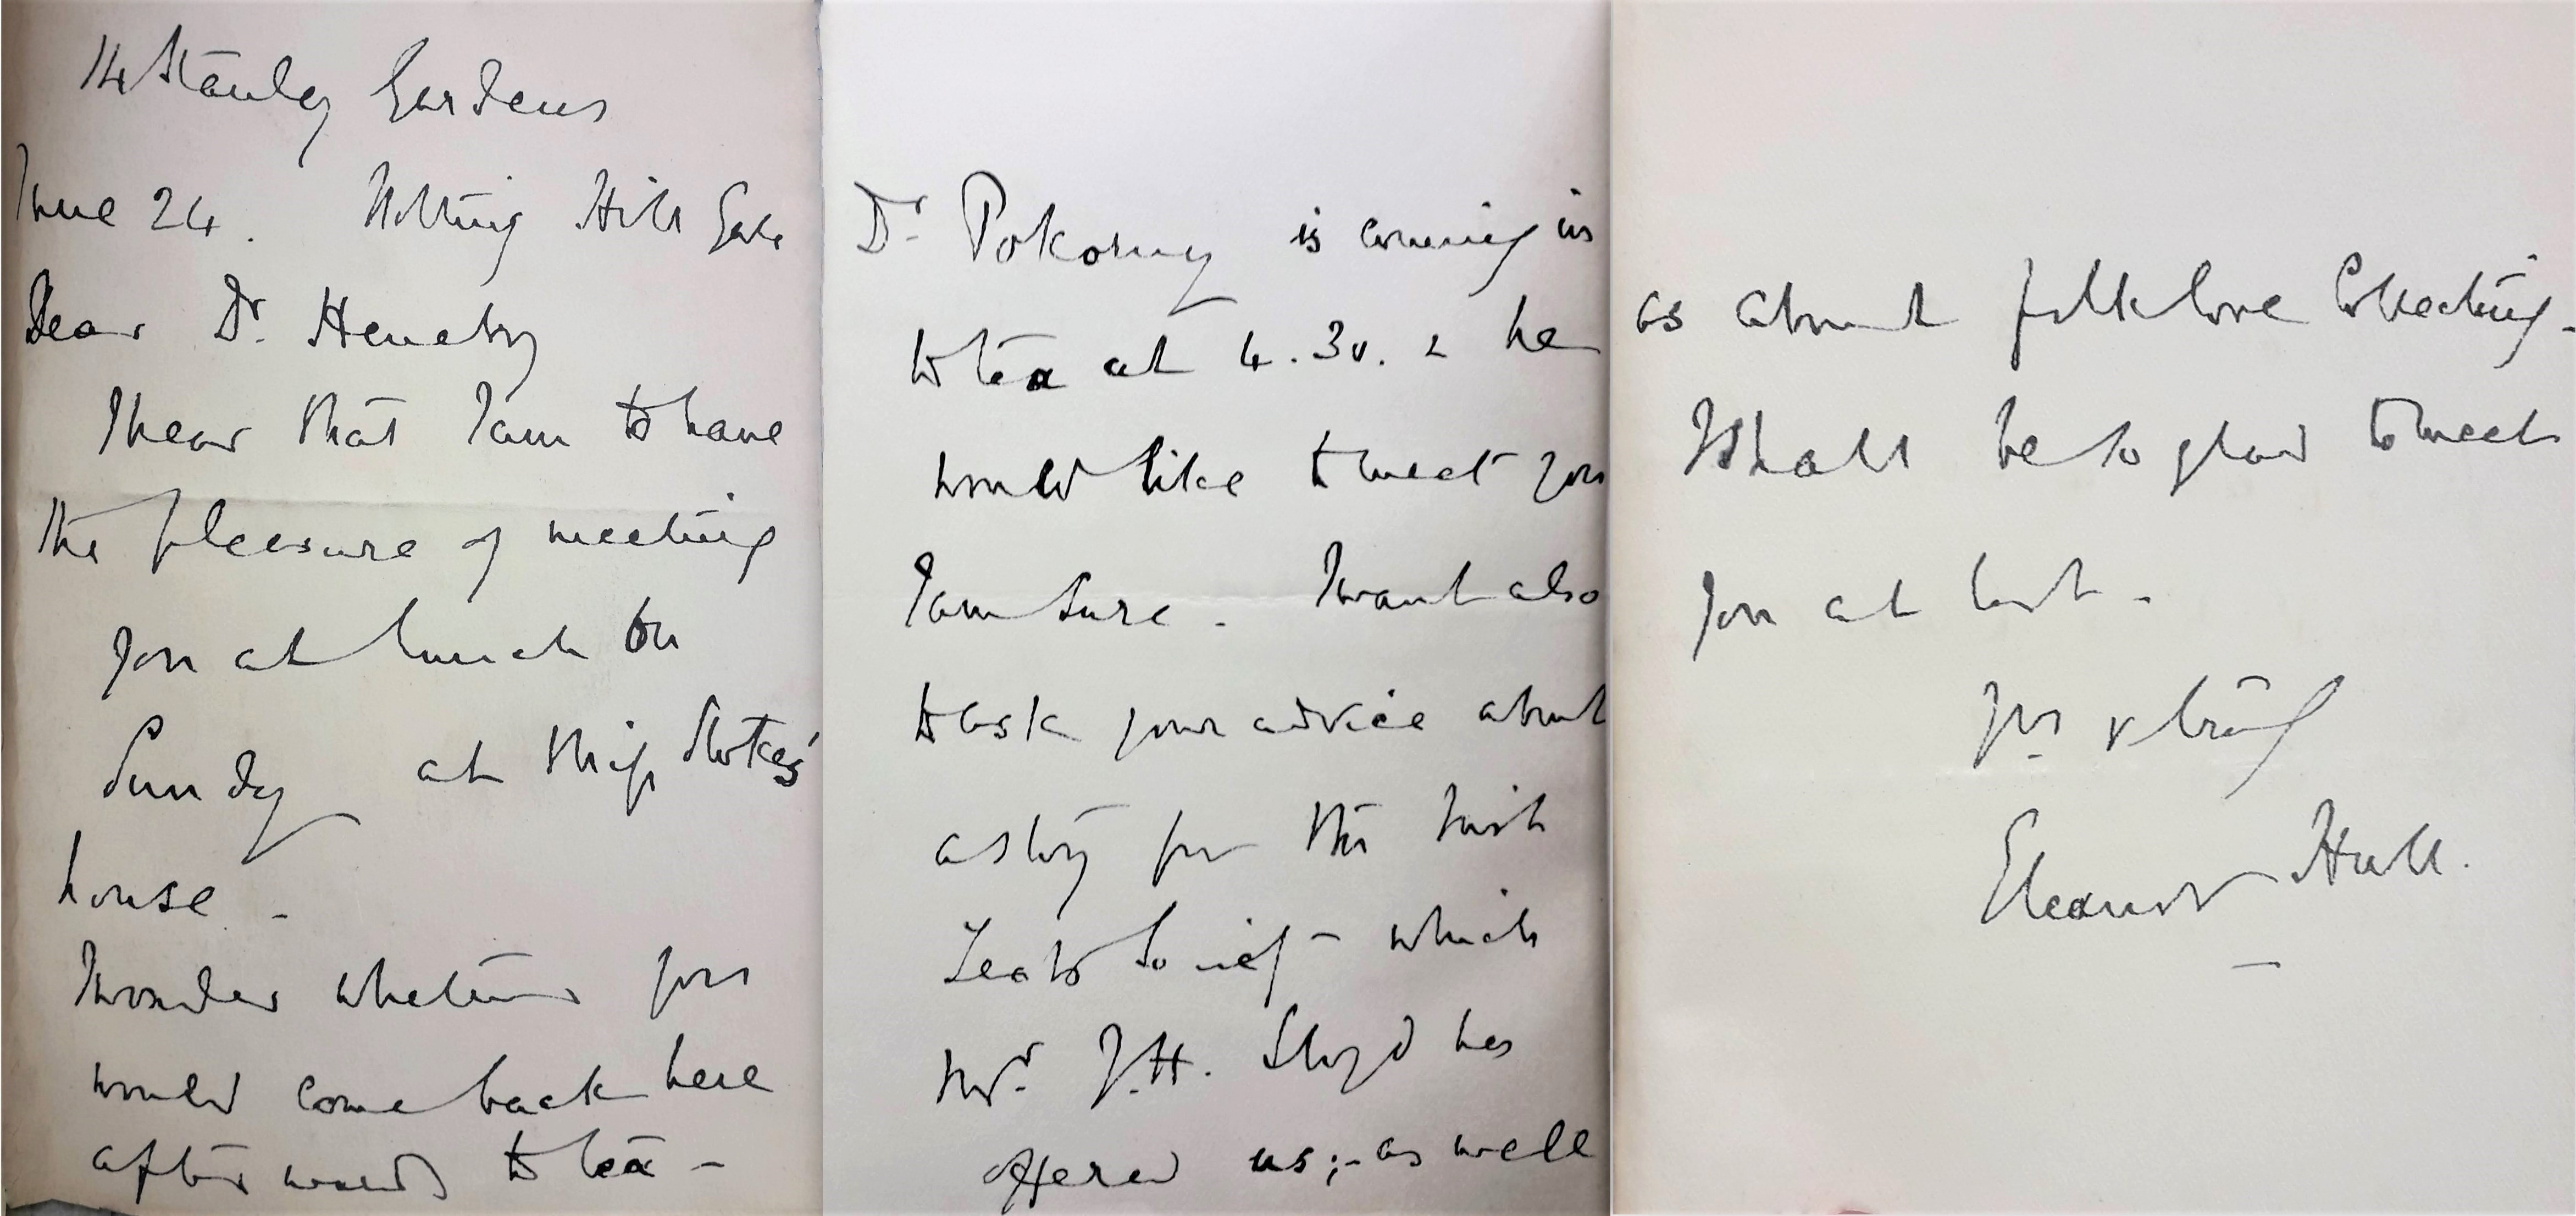 14 Stanley Gardens
June 24. Notting Hill Gate
Dear Dr. Henebry
I hear that I am to have
the pleasure of meeting
you at lunch on
Sunday at Miss Stokes'
house -
I wonder whether you
would come back here
afterwards to tea -
Dr. Pokorny is coming in
to tea at 4.30. & he
would like to meet you
I am sure. I want also
to ask your advice about
a story for the Irish
Texts Society - which
Mr. J.H. Lloyd has
offered us; - as well
as about folklore collecting -
I shall be so glad to meet
you at last -
Yrs
Eleanor Hull.